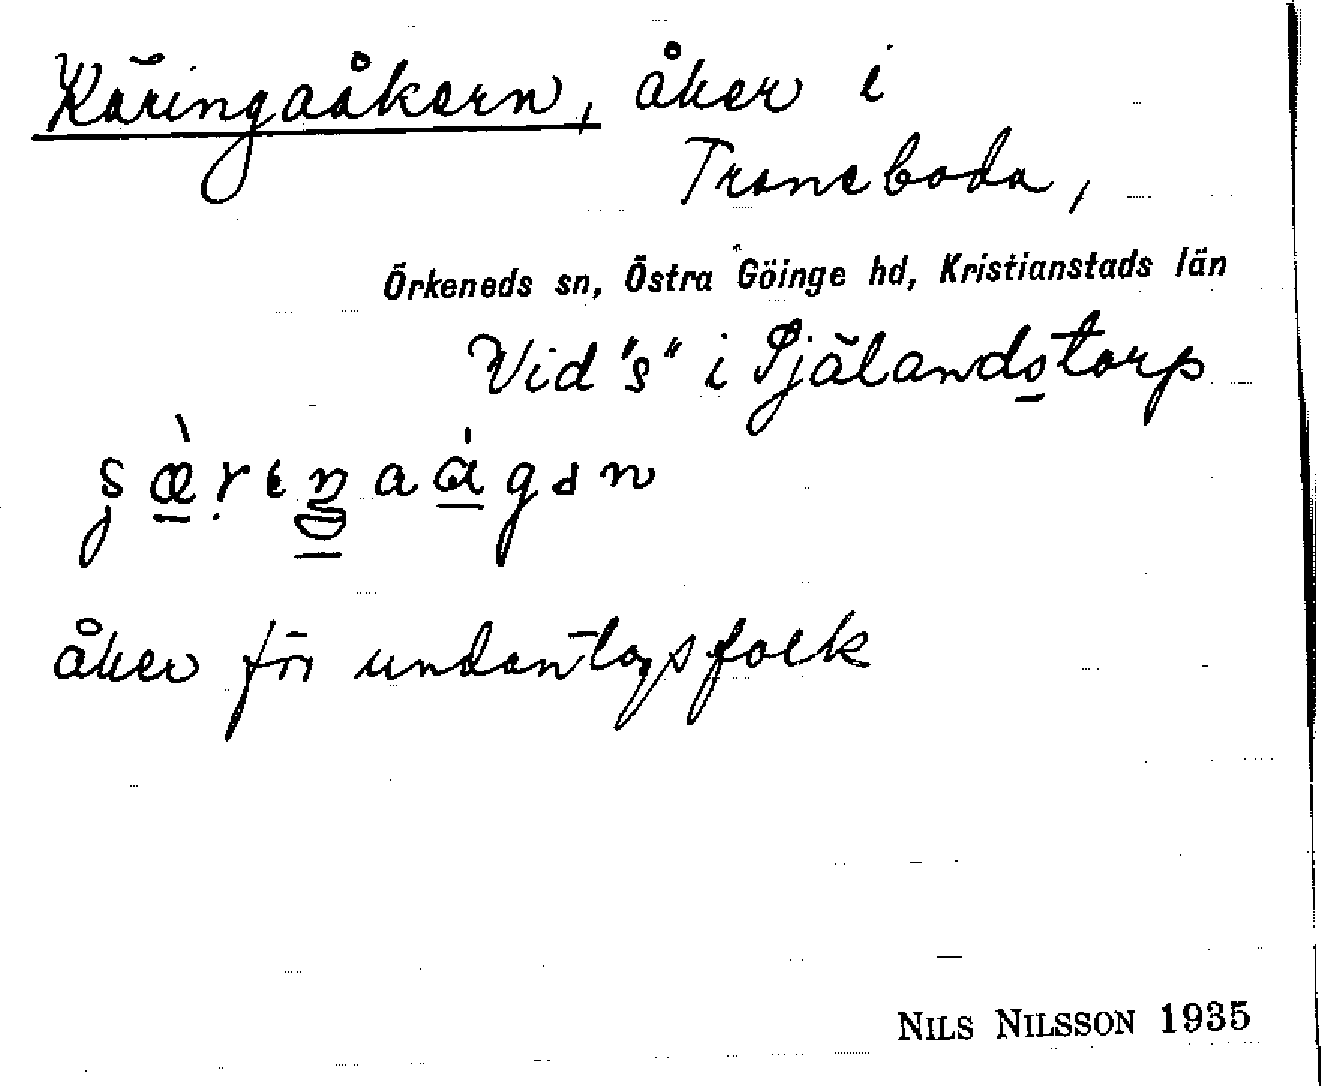 Käringaåkern, åker i
Traneboda,
Örkeneds sn, Östra Göinge hd, Kristianstads län
Vid "s" i Själandstorp
åker för undantagsfolk
NILS NILSSON 1935